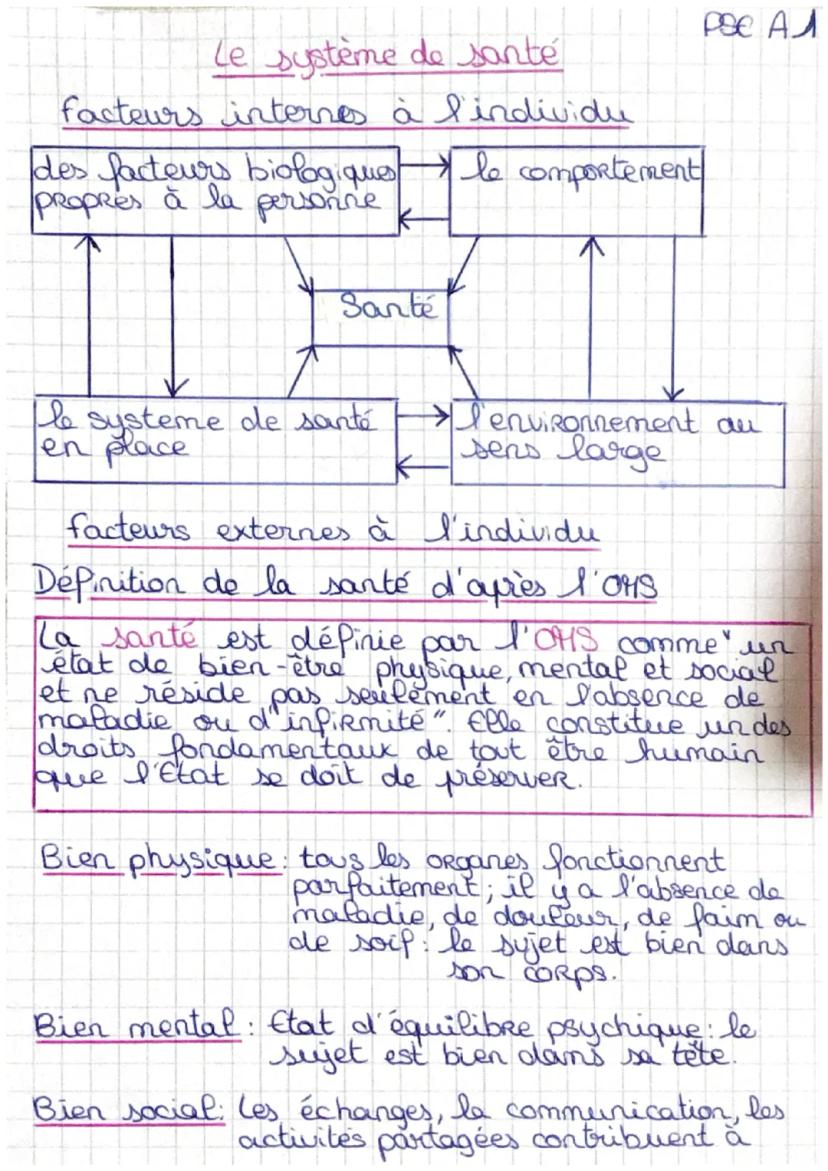 PSE A1
Le système de santé
facteurs internes à l'individu
des facteurs biologiques
propres à la personne
le comportement
Santé
le systeme de santé
en place
l'environnement au
sens large
facteurs externes à l'individu
Définition de la santé d'après l'OMS
La santé est définie par l'OMS comme "un
état de bien-être physique, mental et social
et ne réside pas seulement en l'absence de
maladie ou d'infirmité". Elle constitue un des
droits fondamentaux de tout être humain
que l'Etat se doit de préserver.
Bien physique : tous les organes fonctionnent
parfaitement ; il y a l'absence de
maladie, de douleur, de faim ou
de soif : le sujet est bien dans
son corps.
Bien mental : Etat d'équilibre psychique : le
sujet est bien dans sa tête.
Bien social : Les échanges, la communication, les
activités partagées contribuent à